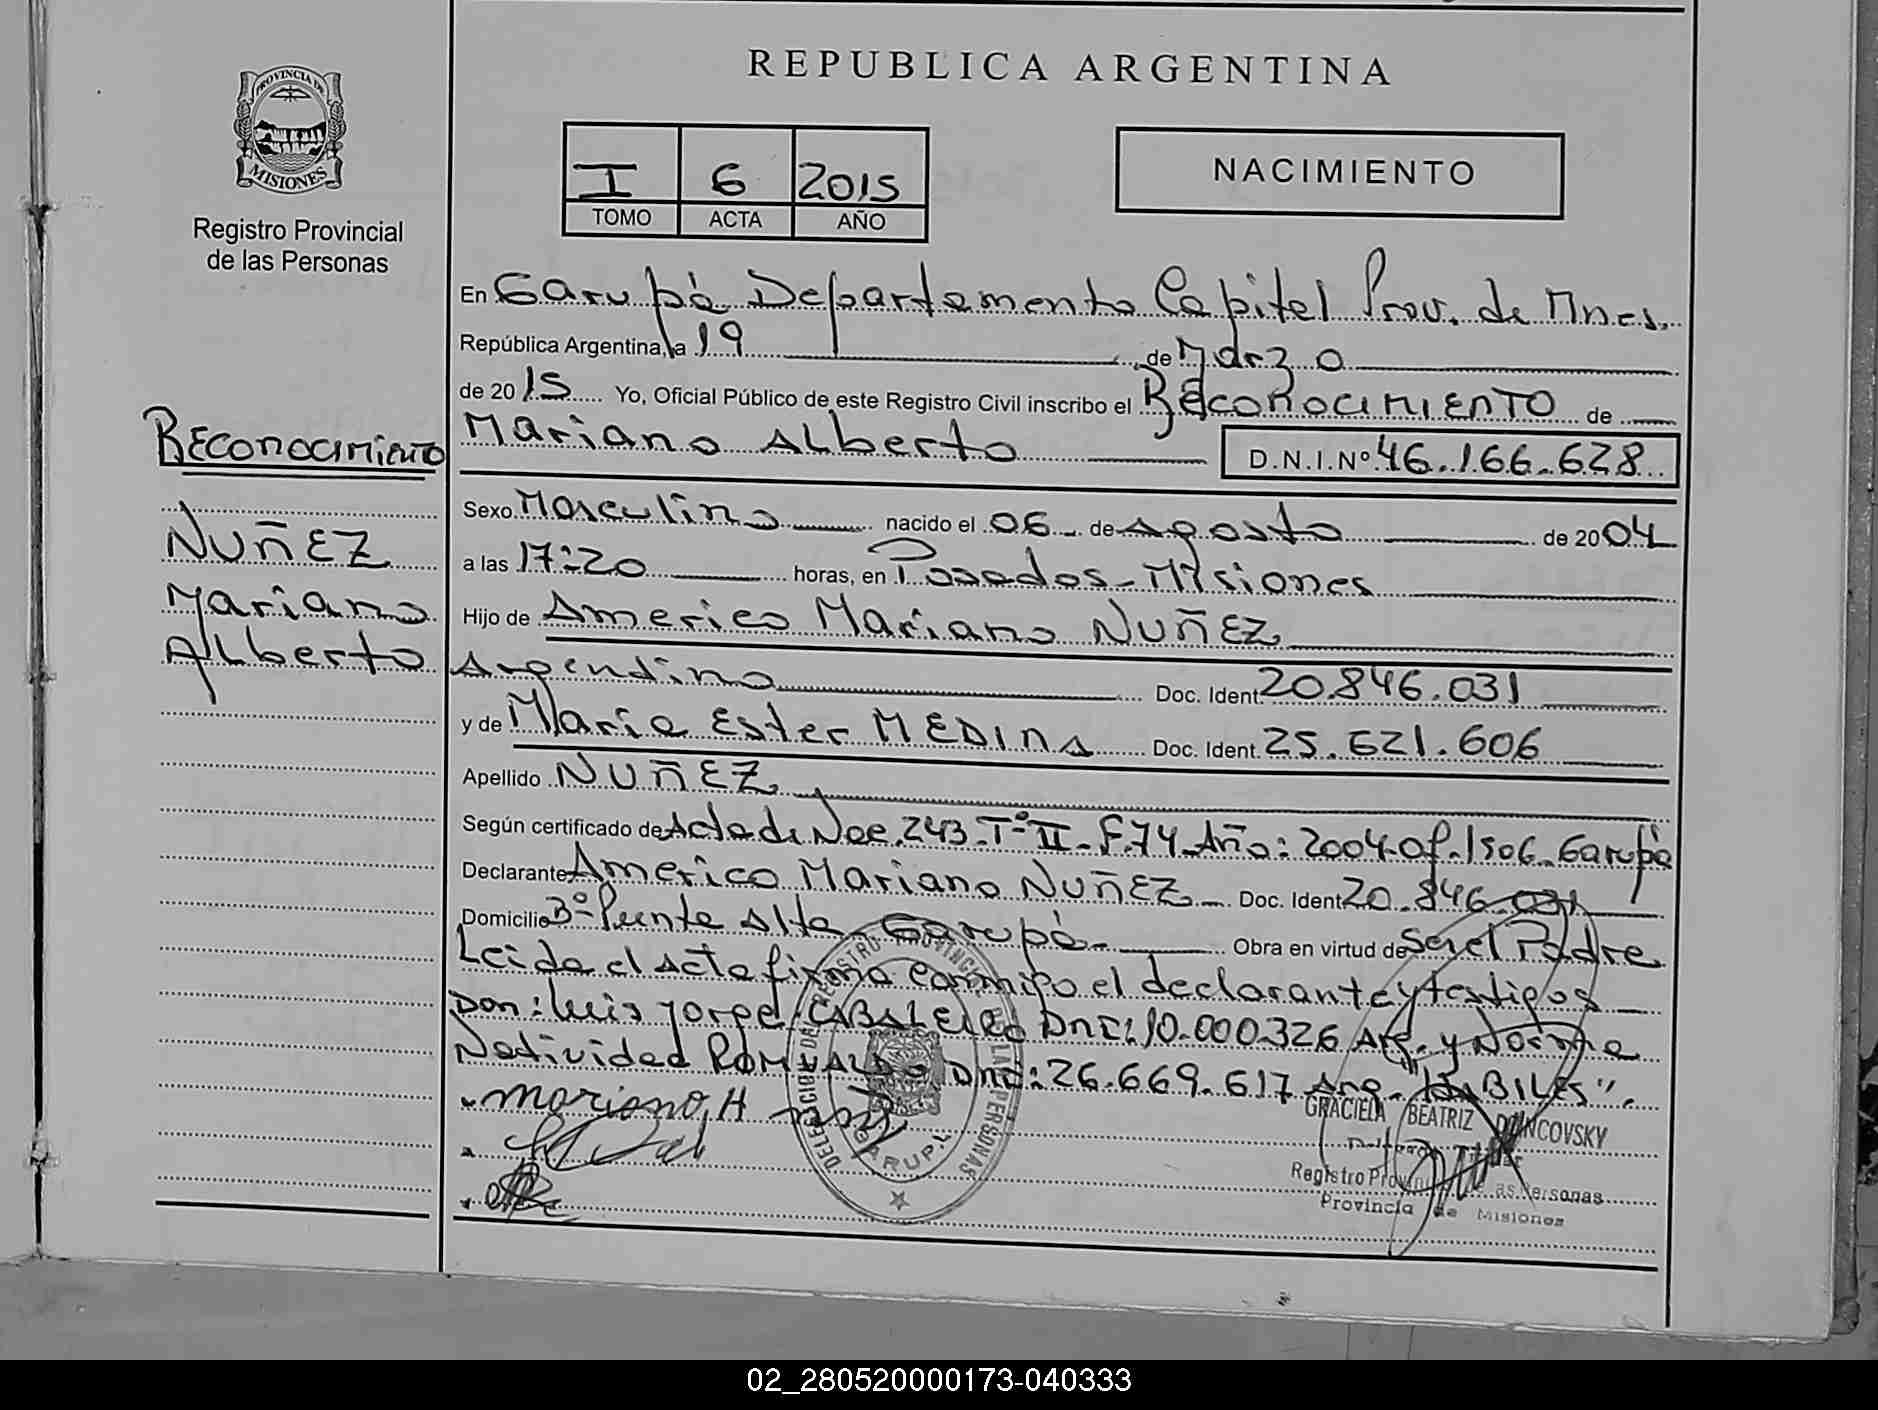 REPUBLICA ARGENTINA
PROVINCIA DE
MISIONES
Registro Provincial
de las Personas
I 6 2015
TOMO ACTA AÑO
NACIMIENTO
En Garupá Departamento Capital Prov. de Mnes.
República Argentina, a 19 de Marzo
de 2015 Yo, Oficial Público de este Registro Civil inscribo el RECONOCIMIENTO de
Mariano Alberto D.N.I.Nº 46.166.628
RECONOCIMIENTO
NUÑEZ
Mariano
Alberto
Sexo Masculino nacido el 06 de Agosto de 2004
a las 17:20 horas, en Posadas - Misiones
Hijo de Americo Mariano NUÑEZ
Argentino Doc. Ident. 20.846.031
y de Maria Ester MEDINA Doc. Ident. 25.621.606
Apellido NUÑEZ
Según certificado de Acta de Nac. 243 - Tº II - F. 74 Año: 2004 - Of. 1506 - Garupá
Declarante Americo Mariano NUÑEZ Doc. Ident 20.846.031
Domicilio Bº Puente Alta - Garupá - Obra en virtud de Ser el Padre
Leida el acta firma conmigo el declarante y testigos
Don: Luis Jorge CABALLERO DNI: 10.000.326 Arg. y Norma
Natividad ROMUALDO DNI: 26.669.617 Arg. "HABILES".
mariano A
DELEGACION DEL REGISTRO PROVINCIAL DE LAS PERSONAS
GARUPA
GRACIELA BEATRIZ DONCOVSKY
Titular
Registro Provincial de las Personas
Provincia de Misiones
02_280520000173-040333